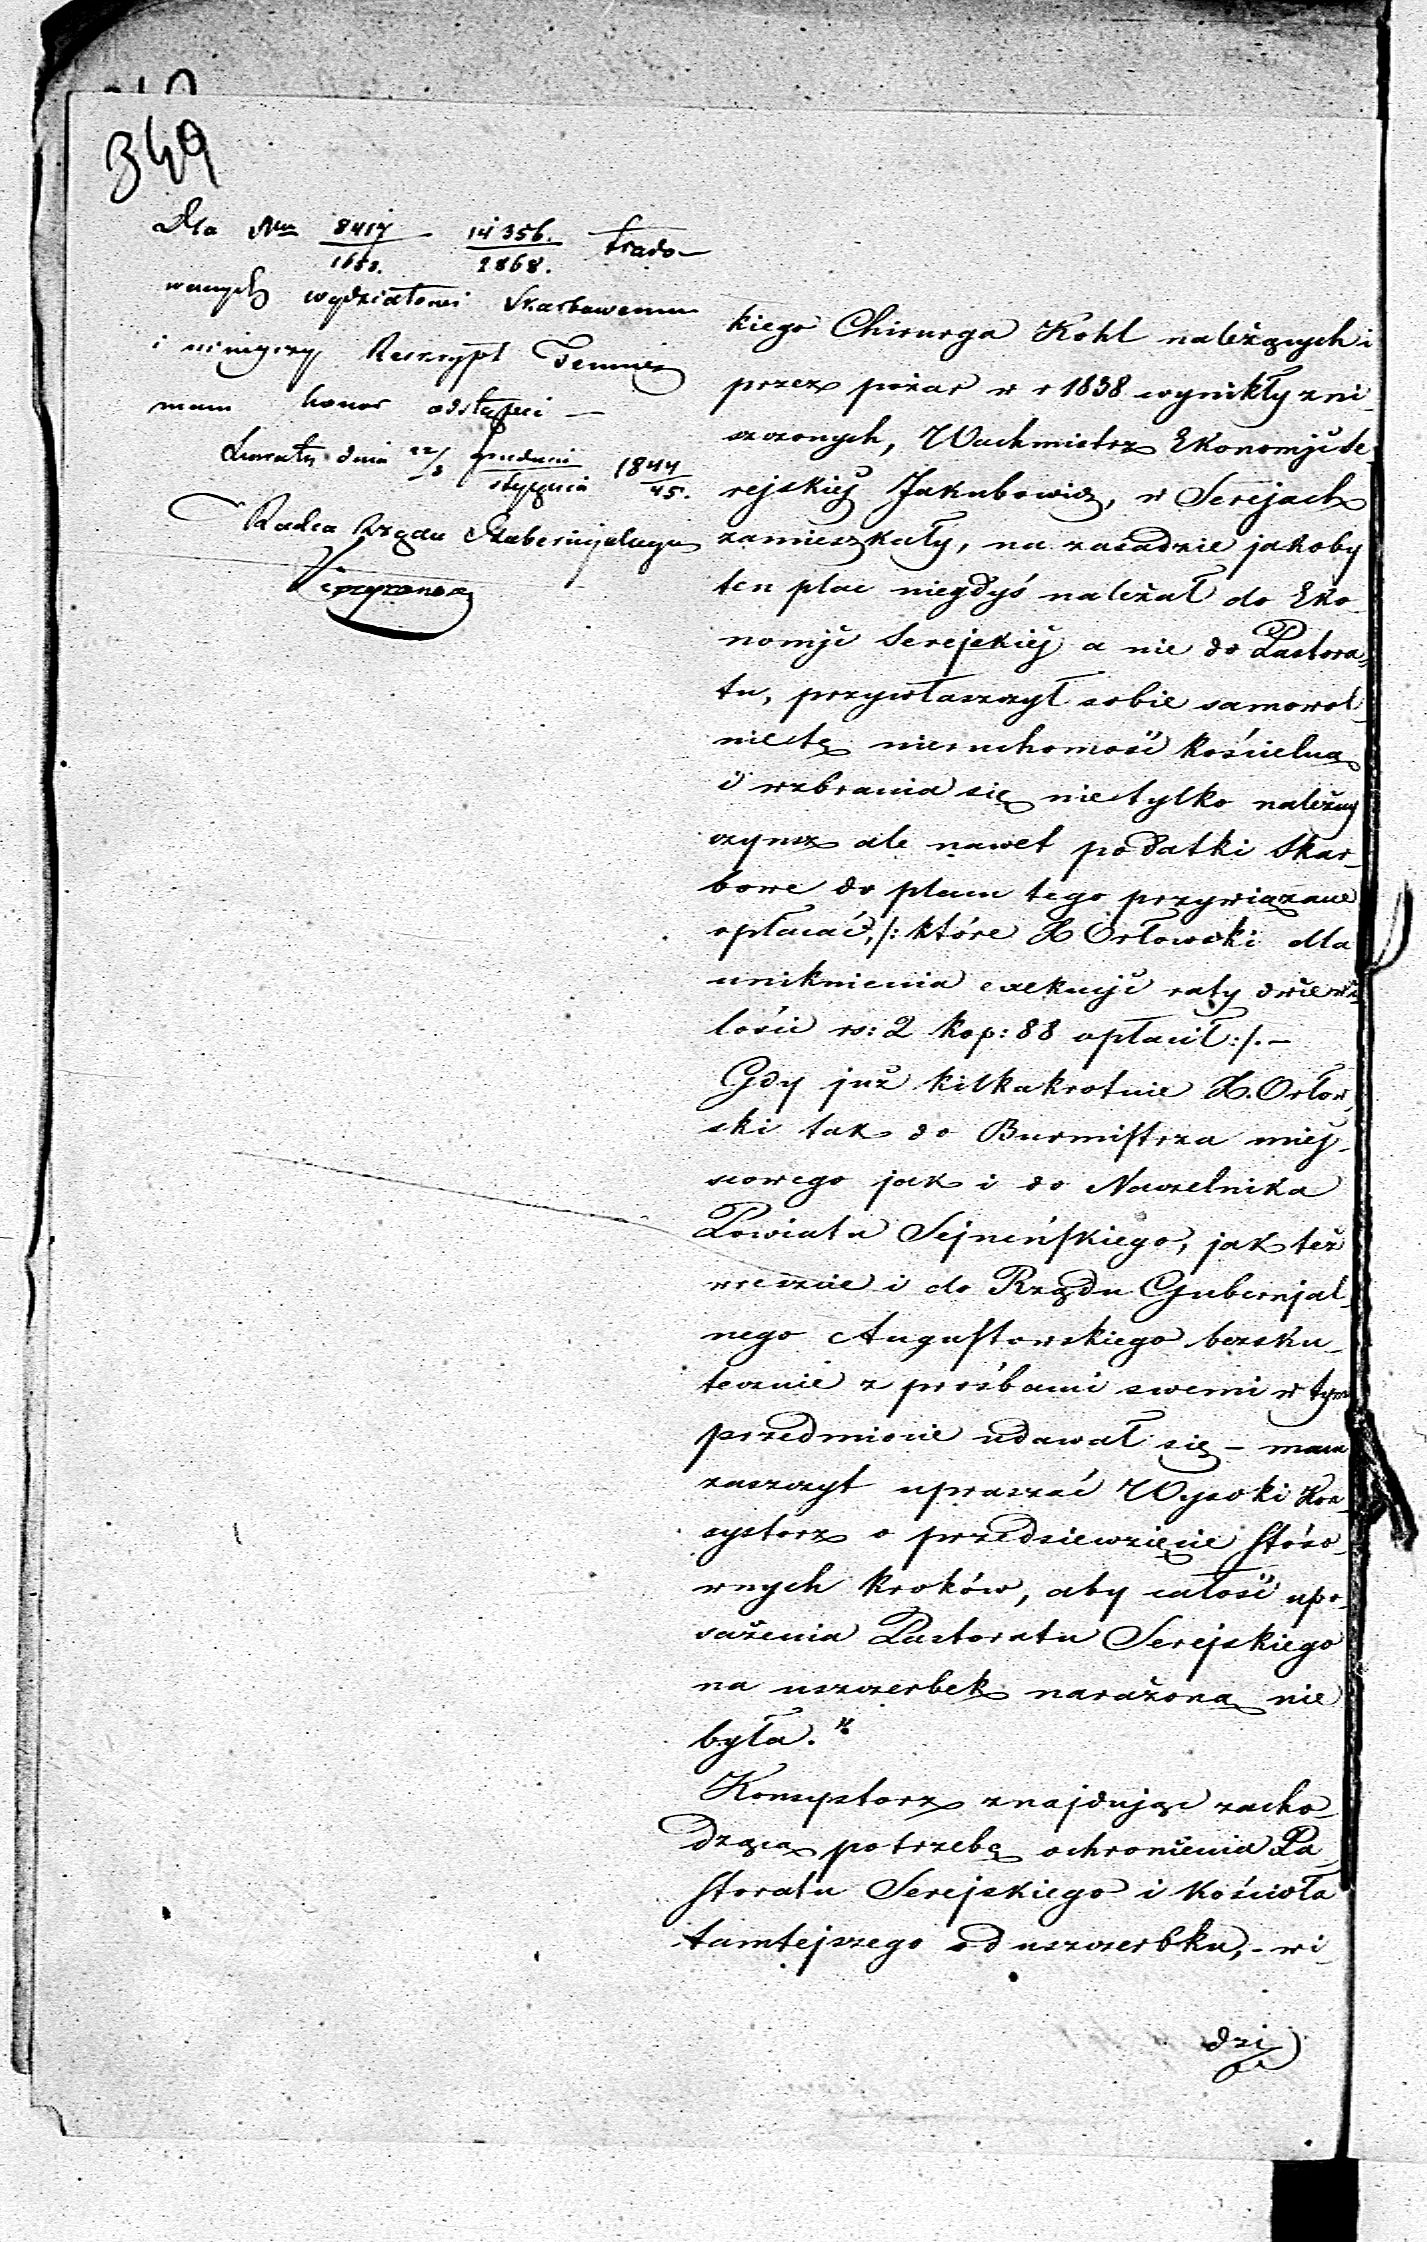 349
Dla Nru 8417/1652. — 14356./2868. trado-
wanych wydziałowi Skarbowemu
i niniejszy Reskrypt Temuż
mam honor odstąpić —
Suwałki dnia 22/3 grudnia/stycznia 1844/45.
Radca Rządu Gubernijalnego
kiego Chirurga Kohl należących i
przez pożar w r 1838 wynikły zni-
szczonych, Wachmistrz Ekonomji Se-
rejskiéj Jakubowicz, w Serejach
zamieszkały, na zasadzie jakoby
ten plac niegdyś należał do Eko-
nomji Serejskiéj a nie do Pastora-
tu, przywłaszczył sobie samowol-
nie tę nieruchomość kościelną
i wzbrania się nietylko należny
czynsz ale nawet podatki Skar-
bowe do placu tego przywiązane
opłacać, /: które X Orłowski dla
uniknienia exekucji raty
lości rs: 2 kop: 88 opłacił :/. —
Gdy już kilkakrotnie X. Orłow-
ski tak do Burmistrza miej-
scowego jak i do Naczelnika
Powiatu Sejneńskiego, jak też
wreszcie i do Rządu Gubernjal-
nego Augustowskiego bezsku-
tecznie z prośbami swemi w tym
przedmiocie udawał się — mam
zaszczyt upraszać Wysoki Kon-
systorz o przedsiewzięcie stóso-
wnych kroków, aby całość upo-
sażenia Pastoratu Serejskiego
na uszczerbek narażoną nie
była."
Konsystorz znajdując zacho-
dzącą potrzebę ochronienia Pa-
storatu Serejskiego i Kościoła
tamtejszego od uszczerbku, - wi-
dzi